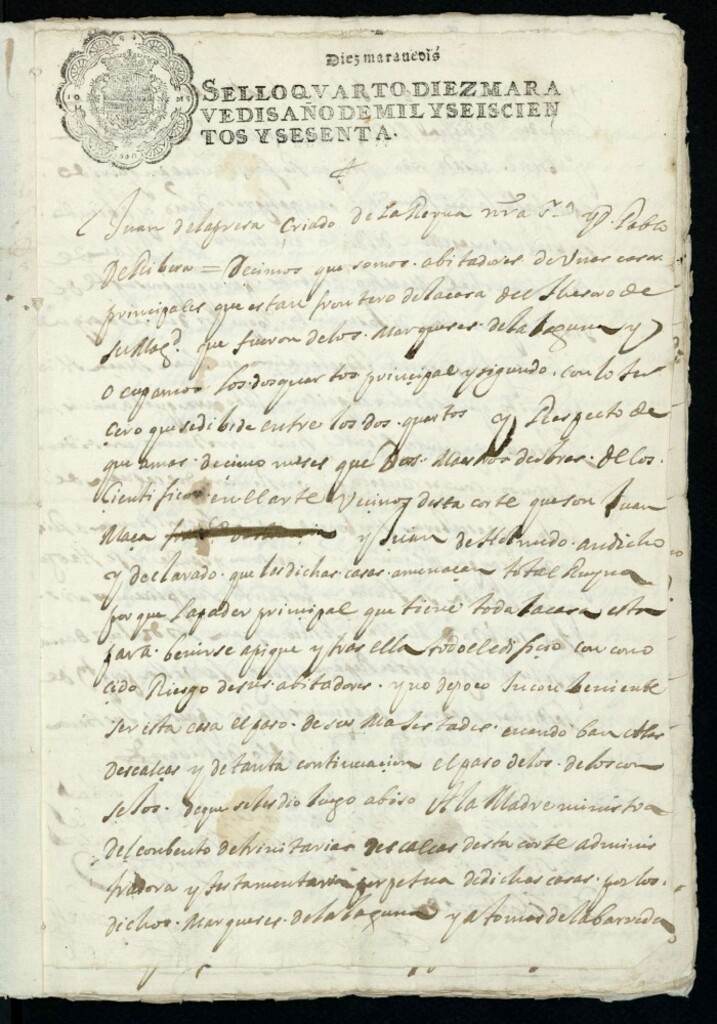 Diez marauedis
SELLO QVARTO, DIEZ MARA
VEDIS, AÑO DE MIL Y SEISCIEN
TOS Y SESENTA.
Juan de la presa Criado de La Reyna nrā Sra y D. Pablo
De Ribera = Decimos que somos abitadores de Unas casas
principales que estan frontero de la casa del thesoro de
Su Magd. que fueron de los Marqueses de la laguna y
Ocupamos los dos quartos principal y sigundo, con lo ter
cero que se dibide entre los dos quartos y Respecto de
que a mas de cinco meses que Dos Maestros de obras de los
Cientificos en el arte Vecinos desta corte que son Juan
Maça y Juan de an dicho
y declarado que las dichas casas amenaçan total Ruyna
por que la pader principal que tiene toda la casa esta
para benirse apique y tras ella todo el edificio con cono
cido Riesgo de sus abitadores y no de poco Inconbeniente
ser esta casa el paso de sus Majestades cuando ban a las
Descalças y de tanta continuacion el paso de los de los con
sejos de que se les dio luego abiso A la Madre ministra
Del conbento de trinitarias descalças desta corte adminis
tradora y testamentaria perpetua de dichas casas por los
dichos Marqueses de la laguna y a tomas de la